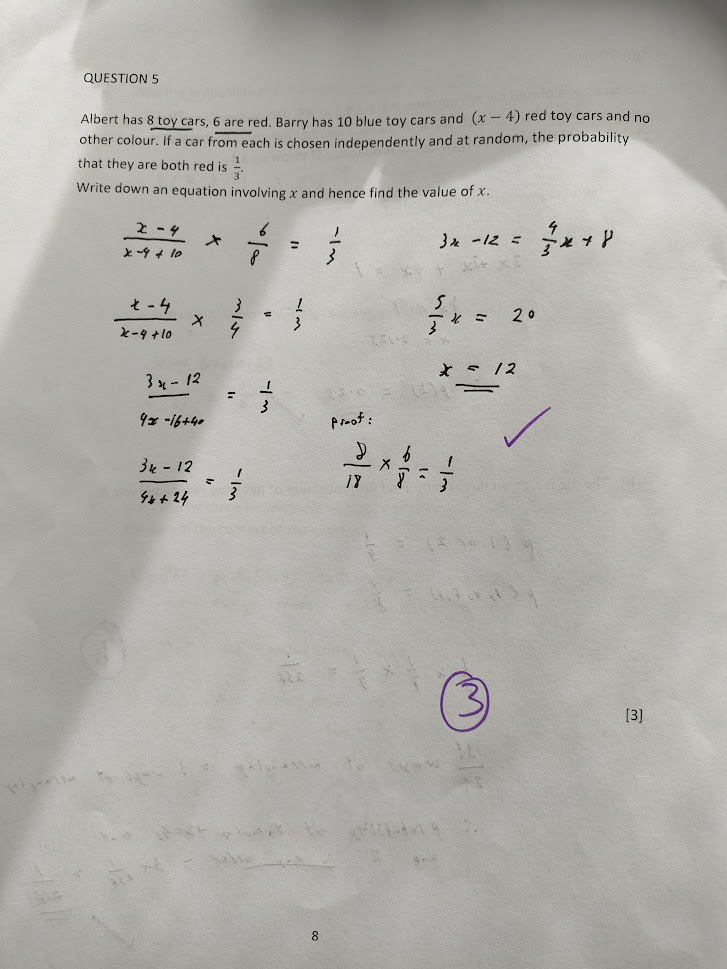 QUESTION 5
Albert has 8 toy cars, 6 are red. Barry has 10 blue toy cars and (x − 4) red toy cars and no
other colour. If a car from each is chosen independently and at random, the probability
that they are both red is 1/3.
Write down an equation involving x and hence find the value of x.
(x − 4)/(x − 4 + 10) × 6/8 = 1/3
(x − 4)/(x − 4 + 10) × 3/4 = 1/3
(3x − 12)/(4x − 16 + 40) = 1/3
(3x − 12)/(4x + 24) = 1/3
3x − 12 = 4/3 x + 8
5/3 x = 20
x = 12
proof:
8/18 × 6/8 = 1/3
✓
3
[3]
8